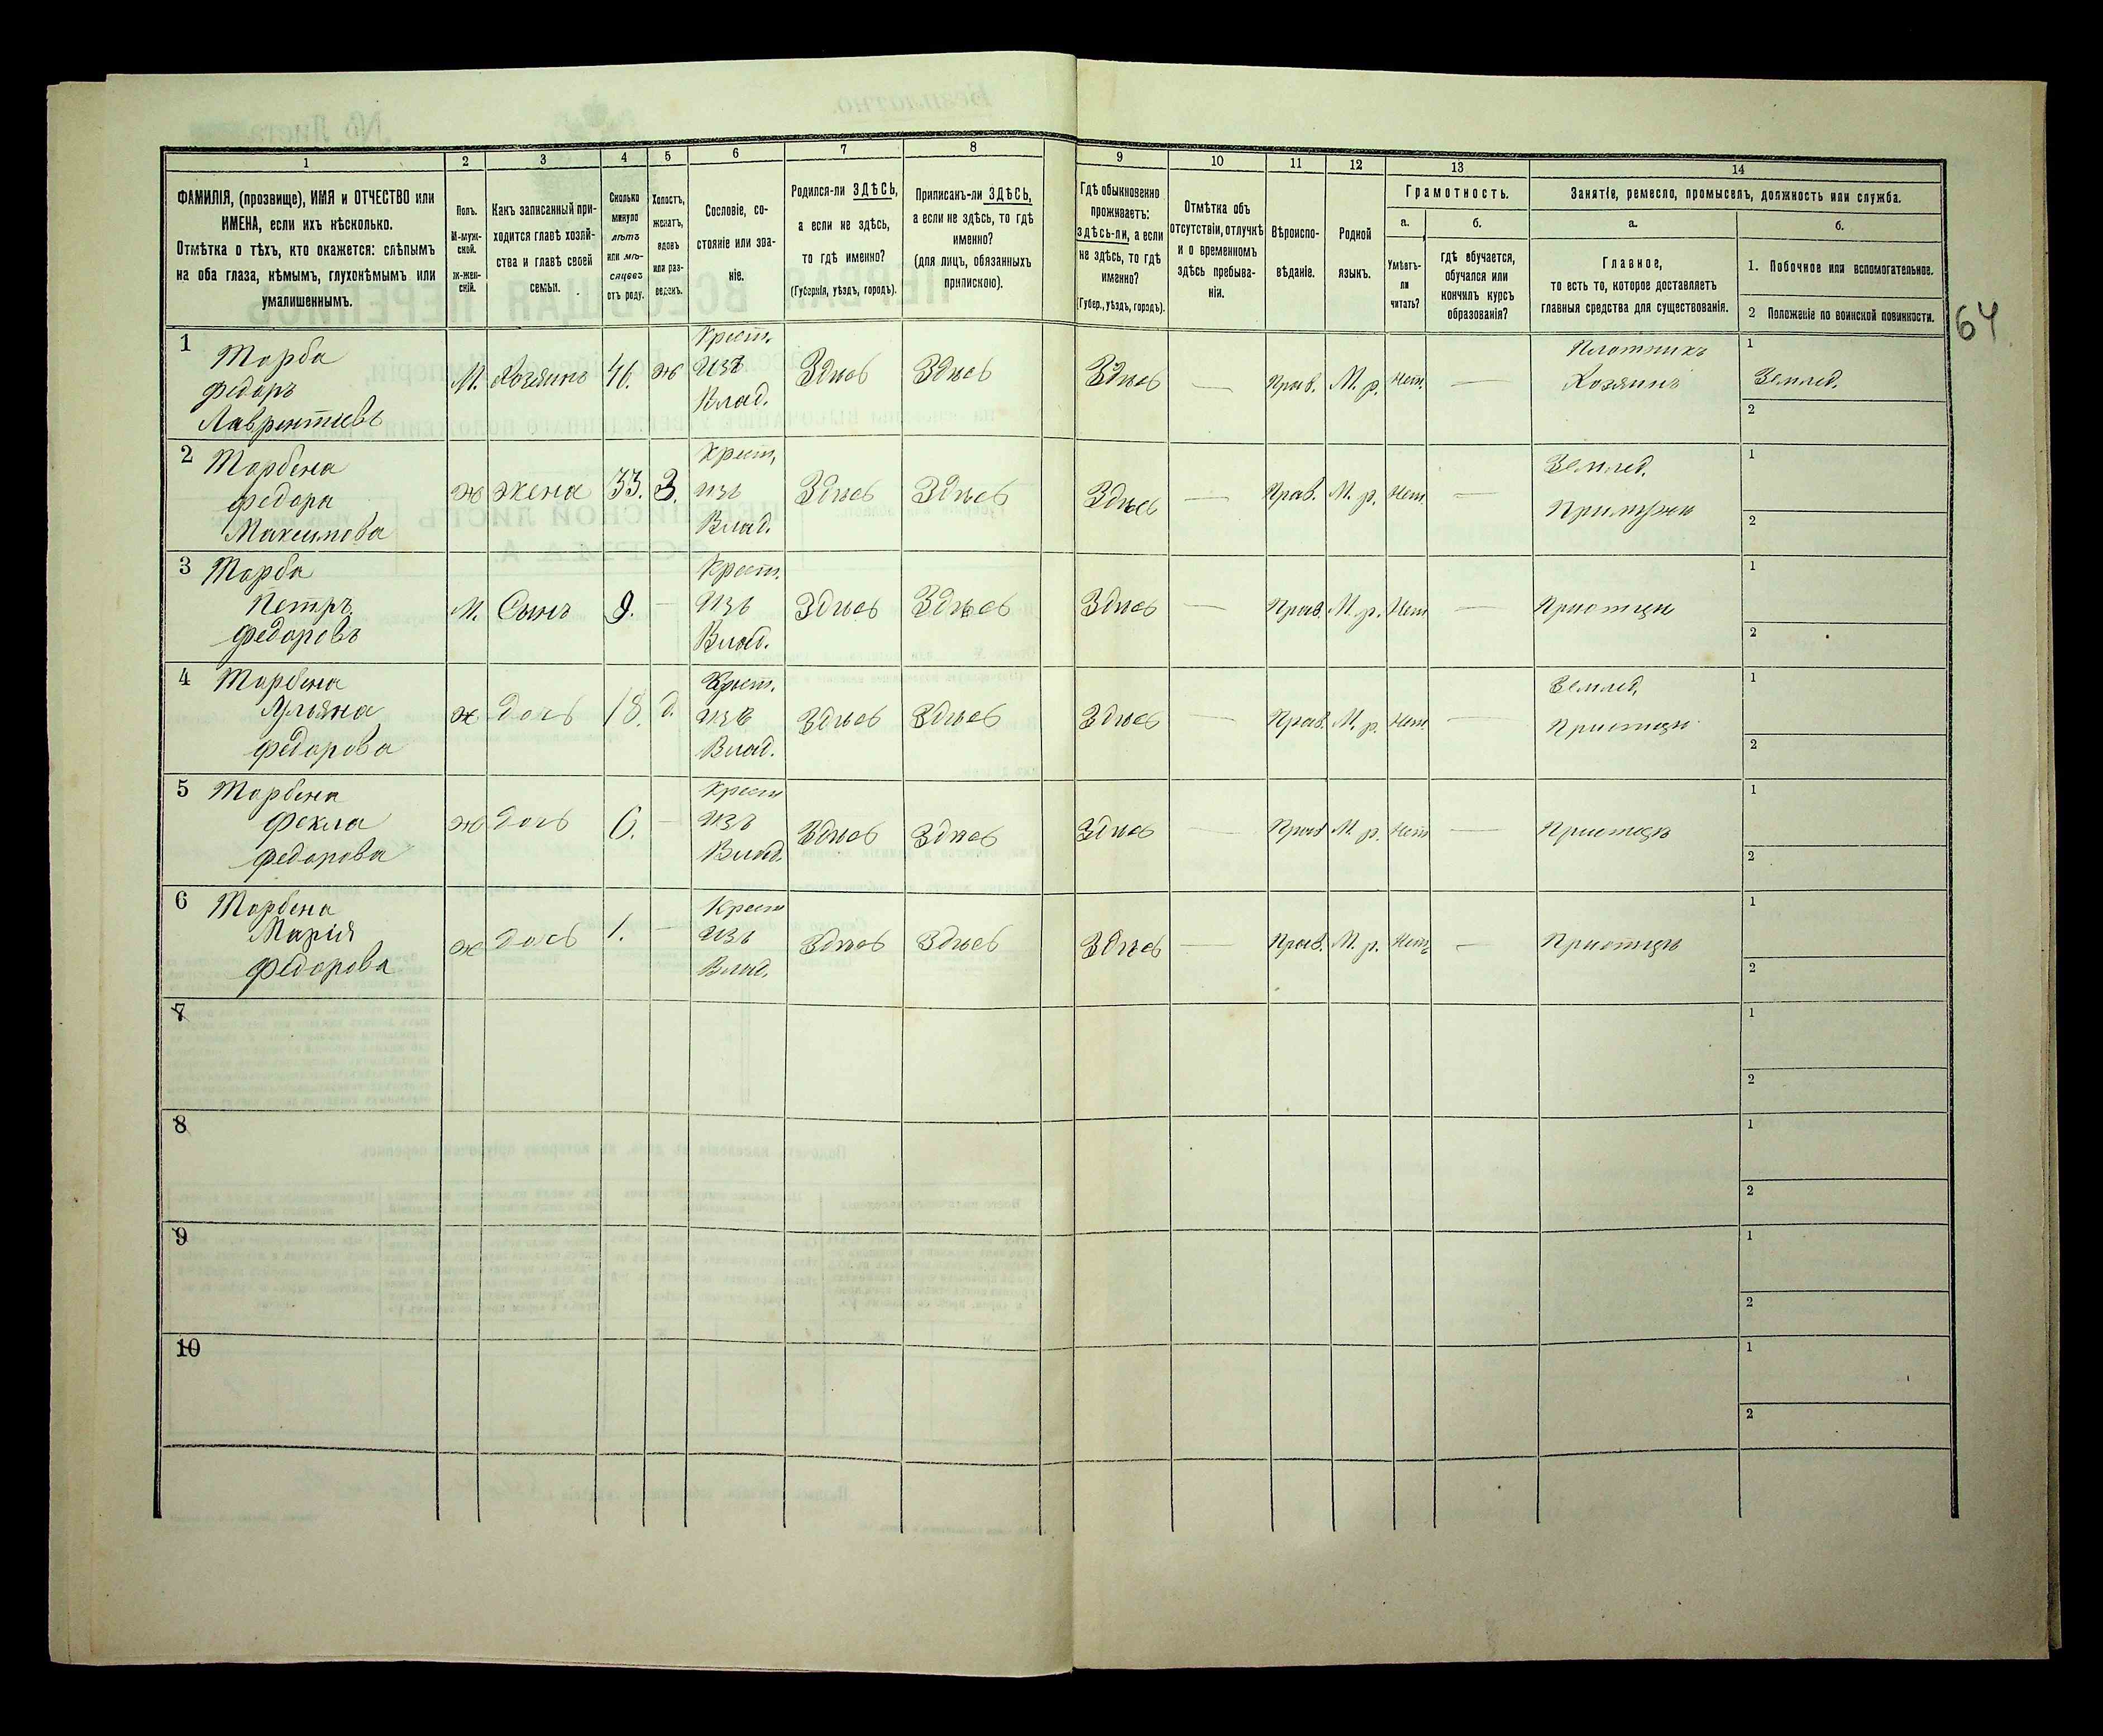 1 2 3 4 5 6 7 8 9 10 11 12 13 14
ФАМИЛІЯ, (прозвище), ИМЯ и ОТЧЕСТВО или ИМЕНА, если ихъ нѣсколько.
Отмѣтка о тѣхъ, кто окажется: слѣпымъ на оба глаза, нѣмымъ, глухонѣмымъ или умалишеннымъ.
Полъ.
М-мужской.
Ж-женскій.
Какъ записанный приходится главѣ хозяйства и главѣ своей семьи.
Сколько минуло лѣтъ или мѣсяцевъ отъ роду.
Холостъ, женатъ, вдовъ или разведенъ.
Сословіе, состояніе или званіе.
Родился-ли ЗДѢСЬ, а если не здѣсь, то гдѣ именно?
(Губернія, уѣздъ, городъ).
Приписанъ-ли ЗДѢСЬ, а если не здѣсь, то гдѣ именно?
(для лицъ, обязанныхъ припискою).
Гдѣ обыкновенно проживаетъ: здѣсь-ли, а если не здѣсь, то гдѣ именно?
(Губер., уѣздъ, городъ).
Отмѣтка объ отсутствіи, отлучкѣ и о временномъ здѣсь пребываніи.
Вѣроисповѣданіе.
Родной языкъ.
Грамотность.
а. Умѣетъ-ли читать?
б. гдѣ обучается, обучался или кончилъ курсъ образованія?
Занятіе, ремесло, промыселъ, должность или служба.
а. Главное,
то есть то, которое доставляетъ главныя средства для существованія.
б.
1. Побочное или вспомогательное.
2 Положеніе по воинской повинности.
64
1 Торба Федоръ Лаврентіевъ М. Хозяинъ ж Крест. изъ Влад. Здѣсь Здѣсь Здѣсь — Прав. М. р. Нет. — Плотникъ Хозяинъ 1 Землед. 2
2 Торбена Федора Максимова ж жена 33. З. Крест. изъ Влад. Здѣсь Здѣсь Здѣсь — Прав. М. р. Нет. — Землед. 1 2
3 Торба Петръ Федоровъ М. Сынъ 9. — Крест. изъ Влад. Здѣсь Здѣсь Здѣсь — Прав. М. р. Нет — При отцѣ 1 2
4 Торбена Ульяна Федорова ж дочь 18. д. Крест. изъ Влад. Здѣсь Здѣсь Здѣсь — Прав. М. р. Нет. — Землед. При отцѣ 1 2
5 Торбена Фекла Федорова ж дочь 6. — Крест изъ Влад. Здѣсь Здѣсь Здѣсь — Прав М. р. Нет — При отцѣ 1 2
6 Торбена Марія Федорова ж дочь 1. — Крест изъ Влад. Здѣсь Здѣсь Здѣсь — Прав. М. р. Нет — При отцѣ 1 2
7 1 2
8 1 2
9 1 2
10 1 2